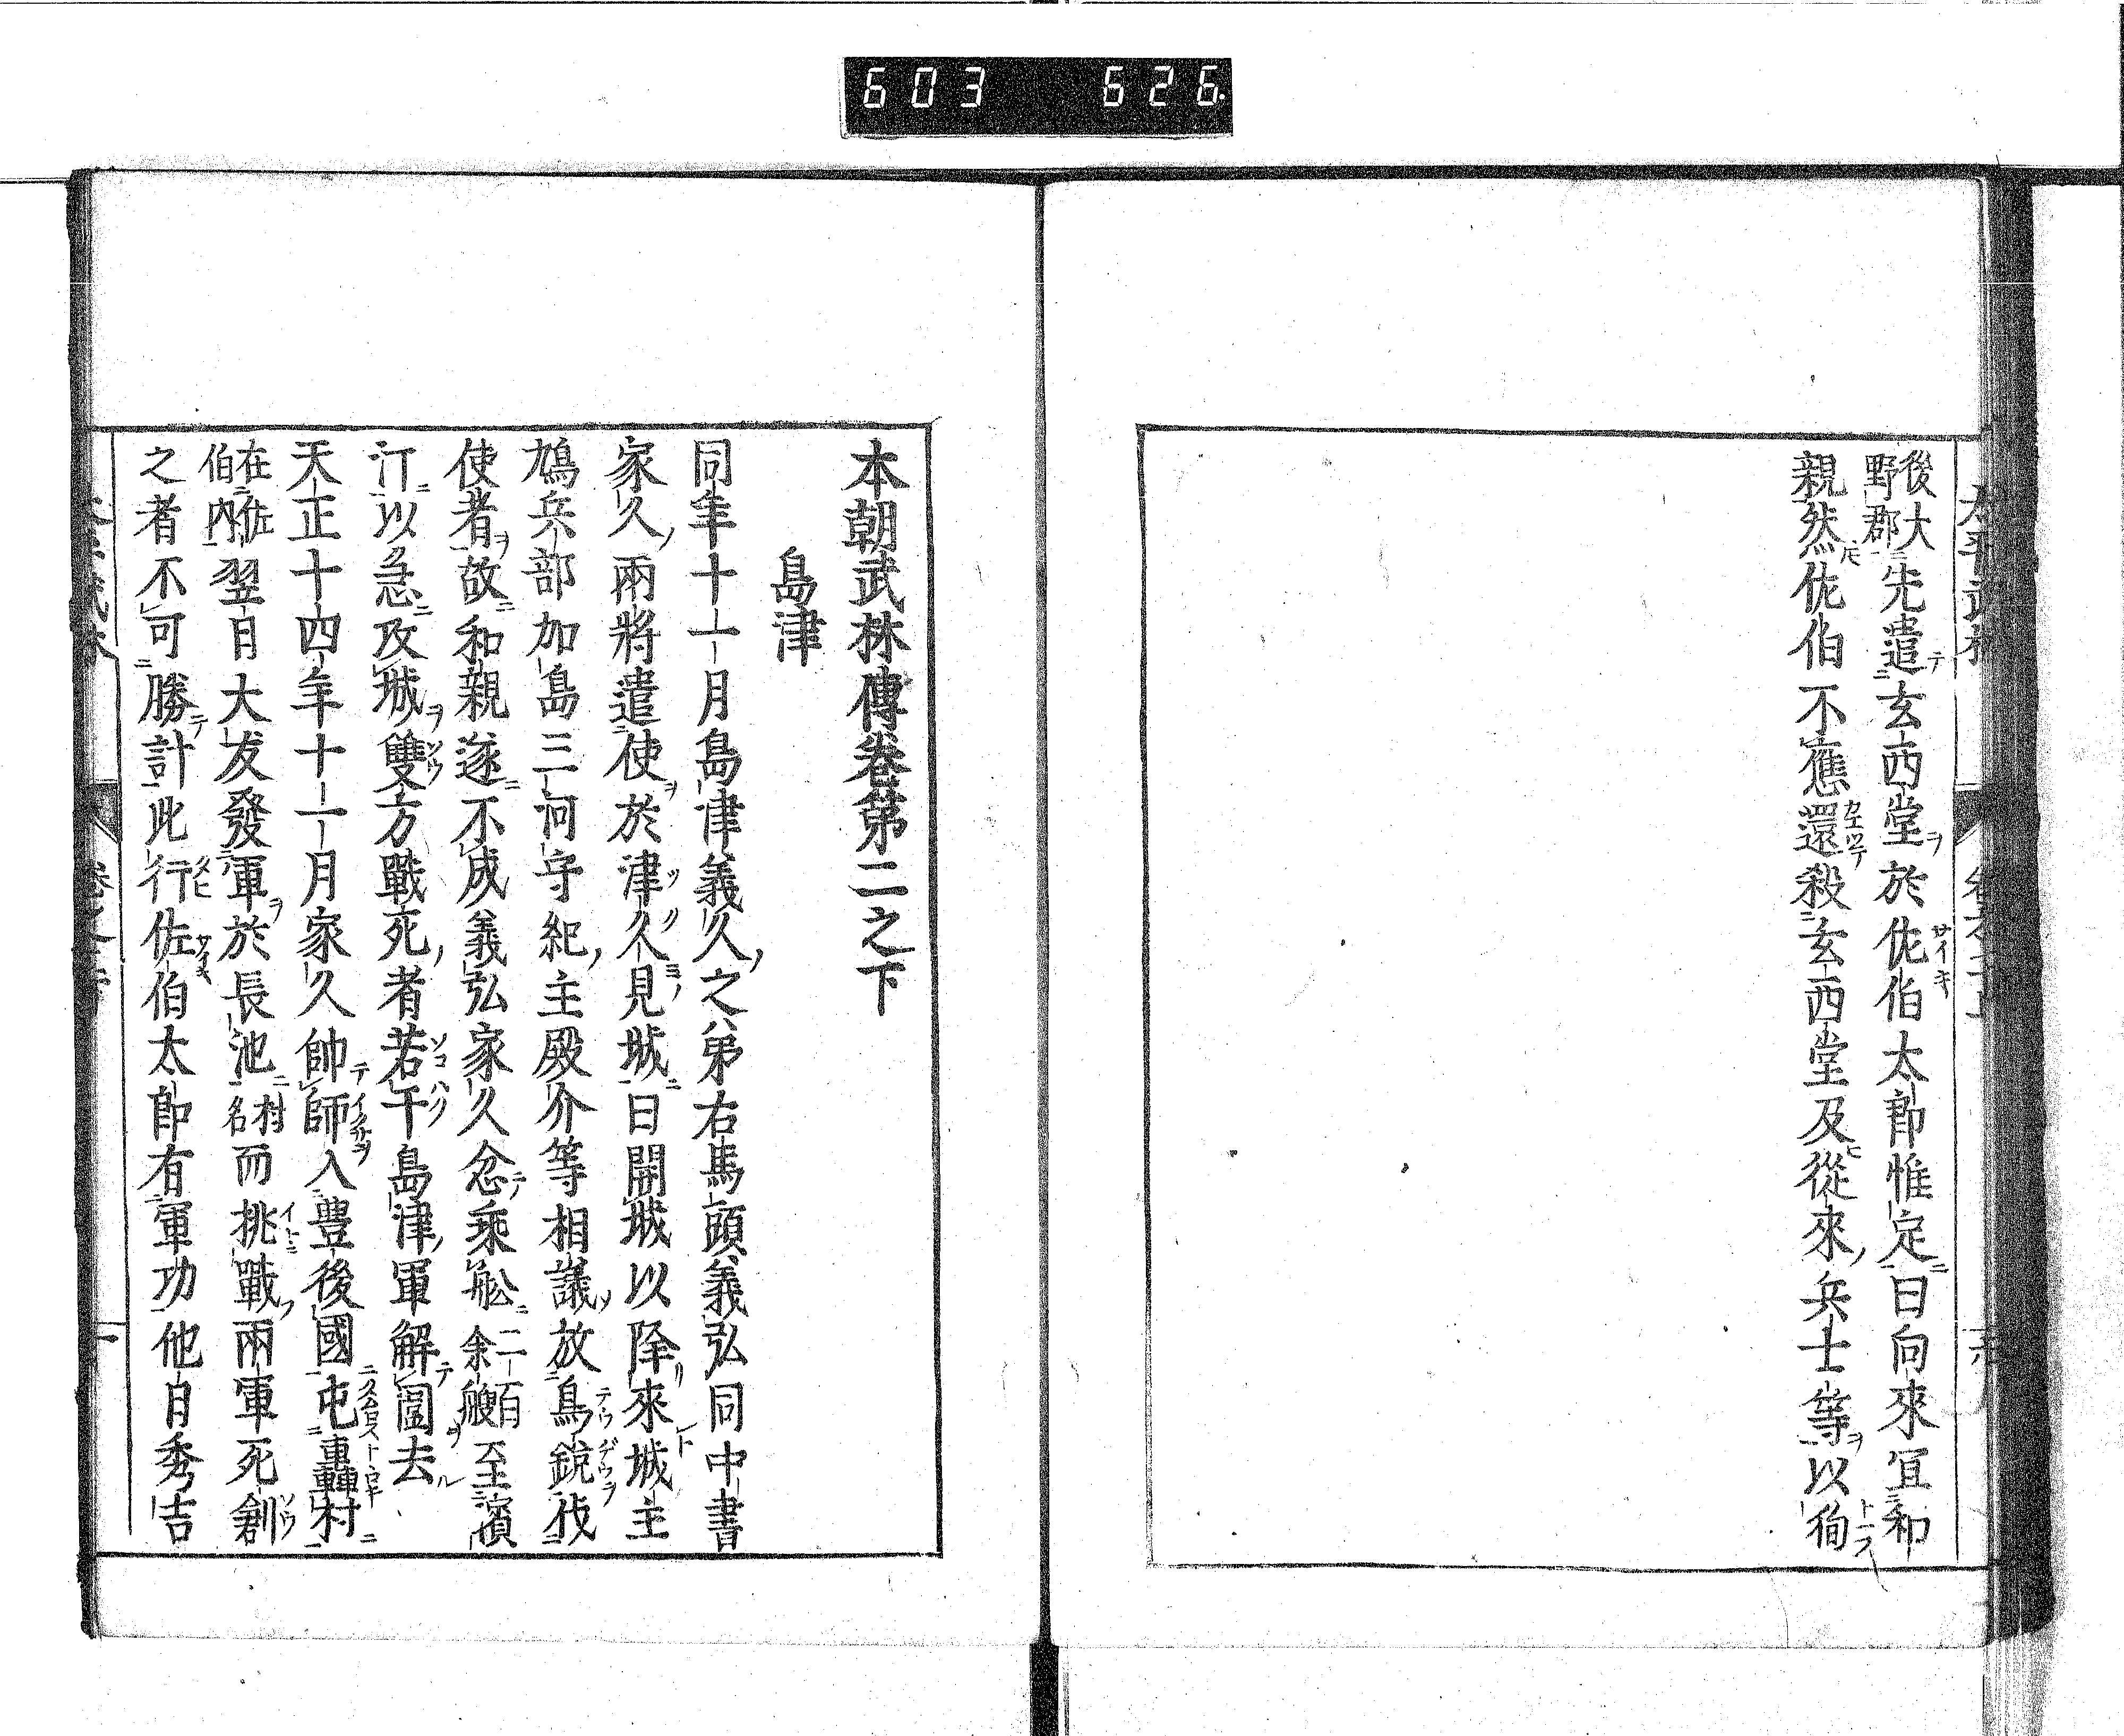 603 626
後大野郡先遣玄西堂於佐伯太郎惟定曰向來冝和
親然佐伯不應還殺玄西堂及從來兵士等以徇
本朝武林傳卷第二之下
島津
同年十一月島津義久之弟右馬頭義弘同中書
家久兩將遣使於津久見城曰開城以降來城主
鳩兵部加島三河守紀主殿介等相議放鳥銃伐
使者故和親遂不成義弘家久忿乘舩二百余艘至濱
汀以急攻城雙方戰死者若干島津軍解圍去
天正十四年十一月家久帥師入豊後國屯轟村
在佐伯內翌日大友發軍於長池村名而挑戰兩軍死創
之者不可勝計此行佐伯太郎有軍功他日秀吉